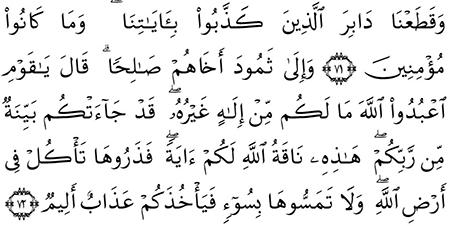 وَقَطَعْنَا دَابِرَ الَّذِينَ كَذَّبُوا۟ بِـَٔايَـٰتِنَا ۖ وَمَا كَانُوا۟
مُؤْمِنِينَ ٧١ وَإِلَىٰ ثَمُودَ أَخَاهُمْ صَـٰلِحًا ۗ قَالَ يَـٰقَوْمِ
اعْبُدُوا۟ اللَّهَ مَا لَكُم مِّنْ إِلَـٰهٍ غَيْرُهُۥ ۖ قَدْ جَآءَتْكُم بَيِّنَةٌ
مِّن رَّبِّكُمْ ۖ هَـٰذِهِۦ نَاقَةُ اللَّهِ لَكُمْ ءَايَةً ۖ فَذَرُوهَا تَأْكُلْ فِىٓ
أَرْضِ اللَّهِ ۖ وَلَا تَمَسُّوهَا بِسُوٓءٍ فَيَأْخُذَكُمْ عَذَابٌ أَلِيمٌ ٧٢